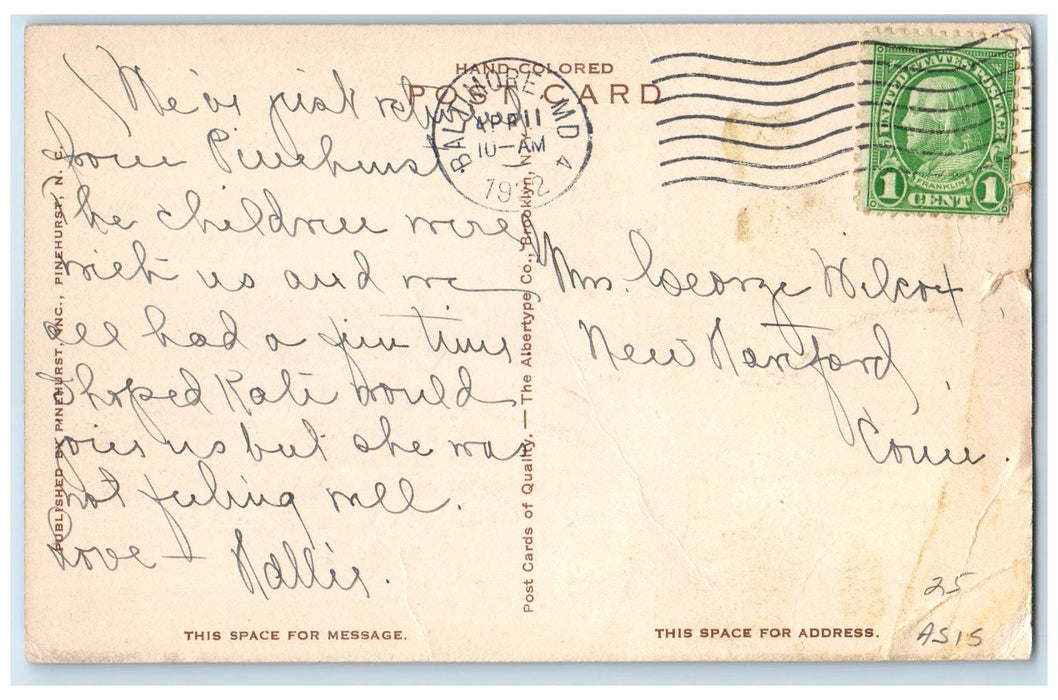 HAND-COLORED
POST CARD
BALTIMORE, MD 4
APR 11
10-AM
1932
UNITED STATES POSTAGE
FRANKLIN
1 CENT 1
We're just returned
from Pinehurst
The children were
with us and we
all had a fine time
I hoped Kate would
join us but she was
not feeling well.
Love —
PUBLISHED BY PINEHURST, INC., PINEHURST, N. C.
Post Cards of Quality. — The Albertype Co., Brooklyn, N.Y.
Mrs. George Wilcox,
New Hartford,
Conn.
25
AS IS
THIS SPACE FOR MESSAGE.
THIS SPACE FOR ADDRESS.